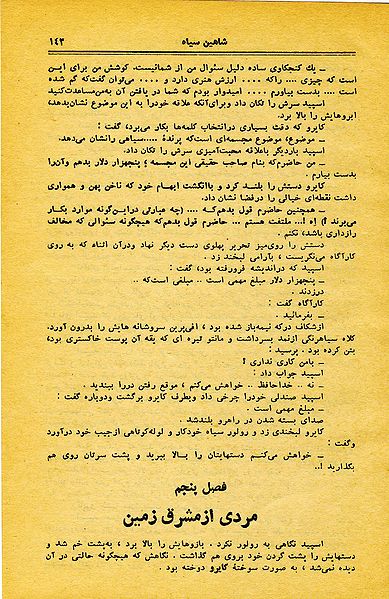 شاهین سیاه ۱۴۳
ـ یك کنجکاوی ساده دلیل سئوال من از شماست. کوشش من برای این
است که چیزی .... راکه .... ارزش هنری دارد و .... می‌توان گفت‌که گم شده
است .... بدست بیاورم .... امیدوار بودم که شما در یافتن آن به‌من‌مساعدت‌کنید
اسپید سرش را تکان داد وبرای‌آنکه علاقه خودرا به این موضوع نشان‌بدهد،
ابروهایش را بالا برد.
کایرو که دقت بسیاری درانتخاب کلمه‌ها بکار می‌برد، گفت :
ـ موضوع، موضوع مجسمه‌ای است‌که پرندهٔ .....سیاهی رانشان می‌دهد.
اسپید باردیگر باعلاقه محبت‌آمیزی سرش را تکان داد.
ـ من حاضرم‌که بنام صاحب حقیقی این مجسمه ؛ پنجهزار دلار بدهم وآن‌را
بدست بیارم .
کایرو دستش را بلند کرد و باانگشت ابهام خود که ناخن پهن و همواری
داشت نقطه‌ای خیالی را درفضا نشان داد.
ـ همچنین حاضرم قول بدهم‌که .... (چه عبارتی دراین‌گونه موارد بکار
می‌برند !) آه !... ملتفت هستم ... حاضرم قول بدهم‌که هیچگونه سئوالی که مخالف
رازداری باشد، نکنم .
دستش را روی‌میز تحریر پهلوی دست دیگر نهاد ودرآن اثناء که به روی
کارآگاه می‌نگریست ، بآرامی لبخند زد .
اسپید که دراندیشه فرورفته بود، گفت :
ـ پنجهزار دلار مبلغ مهمی است .. مبلغی است‌که ..
درزدند .
کارآگاه گفت :
ـ بفرمائید .
ازشکاف درکه نیمه‌باز شده بود ، افی‌پرین سروشانه هایش را بدرون آورد.
کلاه سیاهرنگی ازنمد بسرداشت و مانتو تیره ای که یقه آن پوست خاکستری بود،
بتن کرده بود. پرسید :
ـ بامن کاری نداری !
اسپید جواب داد :
ـ نه .. خداحافظ .. خواهش می‌کنم ، موقع رفتن دررا ببندید .
اسپید صندلی خودرا چرخی داد وبطرف کایرو برگشت ودوباره گفت :
ـ مبلغ مهمی است .
صدای بسته شدن در راهرو بلندشد .
کایرو لبخندی زد و رولور سیاه خودکار و لوله‌کوتاهی ازجیب خود درآورد
وگفت :
ـ خواهش می‌کنم دستهایتان را بالا ببرید و پشت سرتان روی هم
بگذارید !..
فصل پنجم
مردی از مشرق زمین
اسپید نگاهی به رولور نکرد . بازوهایش را بالا برد ، به‌پشت خم شد و
دستهایش را پشت گردن خود بروی هم گذاشت . نگاهش که هیچگونه حالتی در آن
دیده نمی‌شد ، به صورت سوختهٔ کایرو دوخته بود .